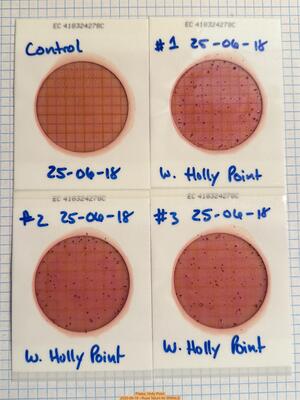 EC 418324278C
EC 418324278C
Control
#1 25-06-18
25-06-18
W. Holly Point
EC 418324278C
EC 418324278C
#2 25-06-18
#3 25-06-18
W. Holly Point
W. Holly Point